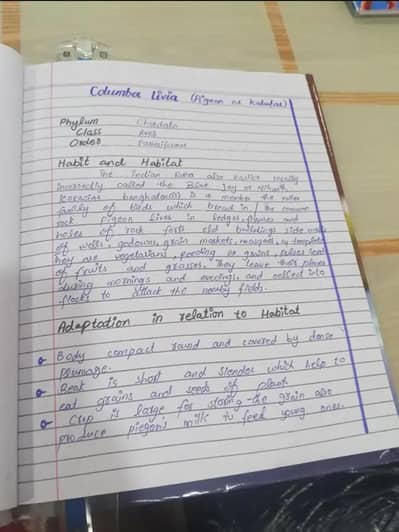 Columba Livia (Pigeon or Kabutar)
Phylum Chordata
Class Aves
Order
Habit and Habitat
The Indian also earlier
incorrectly called the Blue Jay or
is a member the
family of birds which breed in the common
rock pigeon lives in ledges,
holes of rock old buildings side
of wells, godowns, grain markets, mosques, or temples
they are vegetarians, feeding on grains, pulses, seed
of fruits and grasses. They leave their places
during mornings and evenings and collect into
flocks to attack the nearby fields.
Adaptation in relation to Habitat
Body compact round and covered by dense
plumage.
Beak is short and slender which help to
eat grains and seeds of plant
Crop is large for storing the grain also
produce piegon's milk to feed young ones.